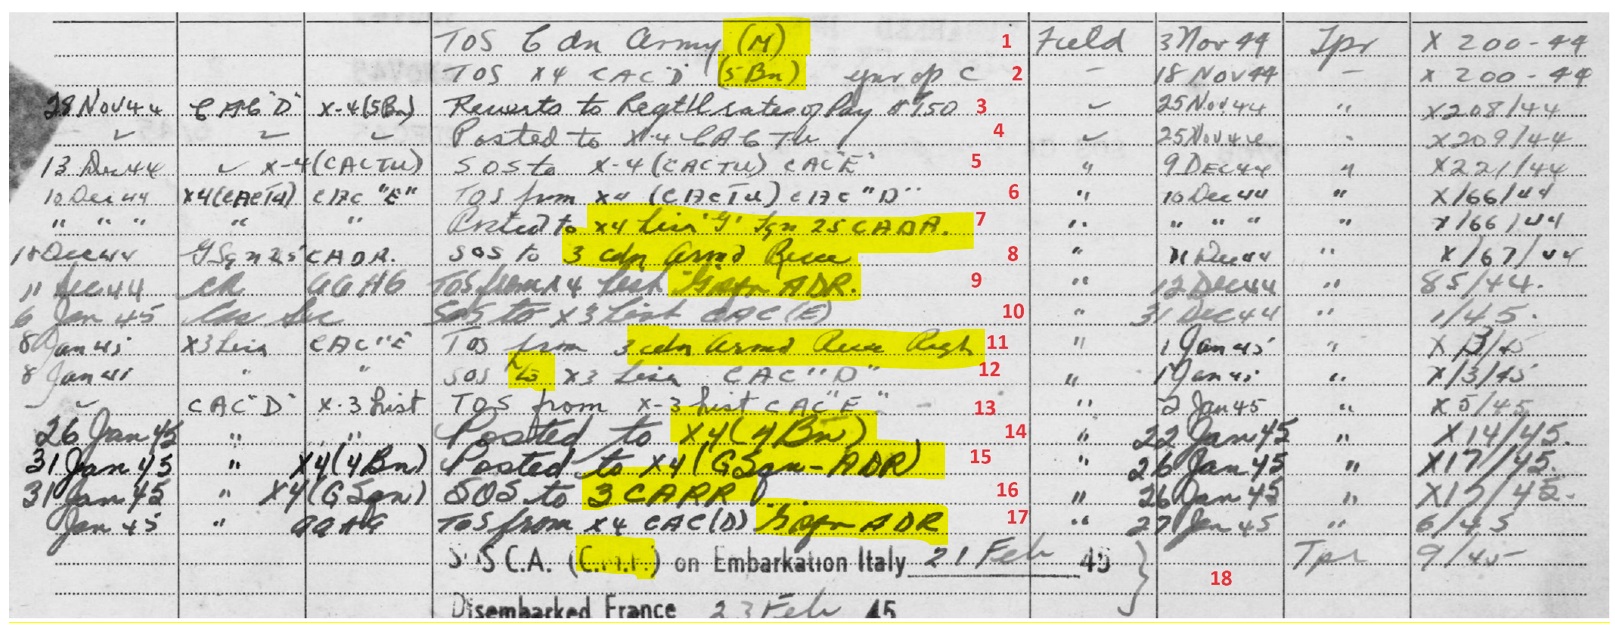 TOS Cdn Army (M) 1 Field 3 Nov 44 Tpr X 200-44
TOS X4 CAC"D" (5Bn) C 2 – 18 Nov 44 – X 200-44
28 Nov 44 CAC "D" X-4(5Bn) Reverts to Regtl rates of Pay $1.50 3 " 25 Nov 44 " X208/44
" " " Posted to X-4 CACTU 4 " 25 Nov 44 " X209/44
13 Dec 44 " X-4(CACTU) SOS to X-4(CACTU) CAC"E" 5 " 9 DEC 44 " X221/44
10 Dec 44 X4(CACTU) CAC "E" TOS from X4 (CACTU) CAC "D" 6 " 10 Dec 44 " X/66/44
" " " " " Posted to X4 List "G" Sqn 25 CADR. 7 " " " " " X/66/44
GSqn 25 CADR. SOS to 3 Cdn Armd Recce 8 " 11 Dec 44 " X/67/44
11 Dec 44 AAHG TOS from X4 List G Sqn ADR. 9 " 12 Dec 44 " 85/44.
6 Jan 45 SOS to X3 List CAC(E) 10 " 31 Dec 44 " 1/45.
8 Jan 45 X3 List CAC"E" TOS from 3 Cdn Armd Recce Regt 11 " 1 Jan 45 " X/3/45
8 Jan 45 " " SOS to X3 List CAC "D" 12 " 1 Jan 45 " X/3/45
" CAC"D" X-3 List TOS from X-3 List CAC"E" - 13 " 2 Jan 45 " X5/45
26 Jan 45 " " Posted to X4(4Bn) 14 " 22 Jan 45 " X14/45.
31 Jan 45 " X4(4Bn) Posted to X4(GSqn-ADR) 15 " 26 Jan 45 " X17/45.
31 Jan 45 " X4(GSqn) SOS to 3 CARR 16 " 26 Jan 45 " X17/45.
Jan 45 " AAHG TOS from X4 CAC(D) G Sqn ADR 17 " 27 Jan 45 " 6/45
SOS C.A. (C.M.F.) on Embarkation Italy 21 Feb 45 18 Tpr 9/45
Disembarked France 23 Feb 45